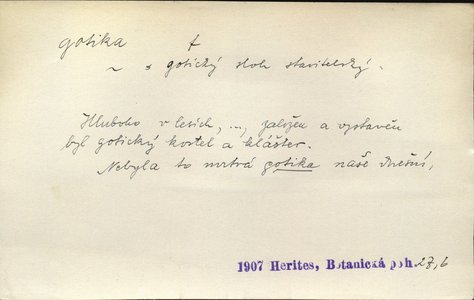 gotika f
~ = gotický sloh stavitelský.
Hluboko v letech, ..., založen a vystavěn
byl gotický kostel a klášter.
Nebyla to mrtvá gotika naše dnešní,
1907 Herites, Botanická poh. 28, 6